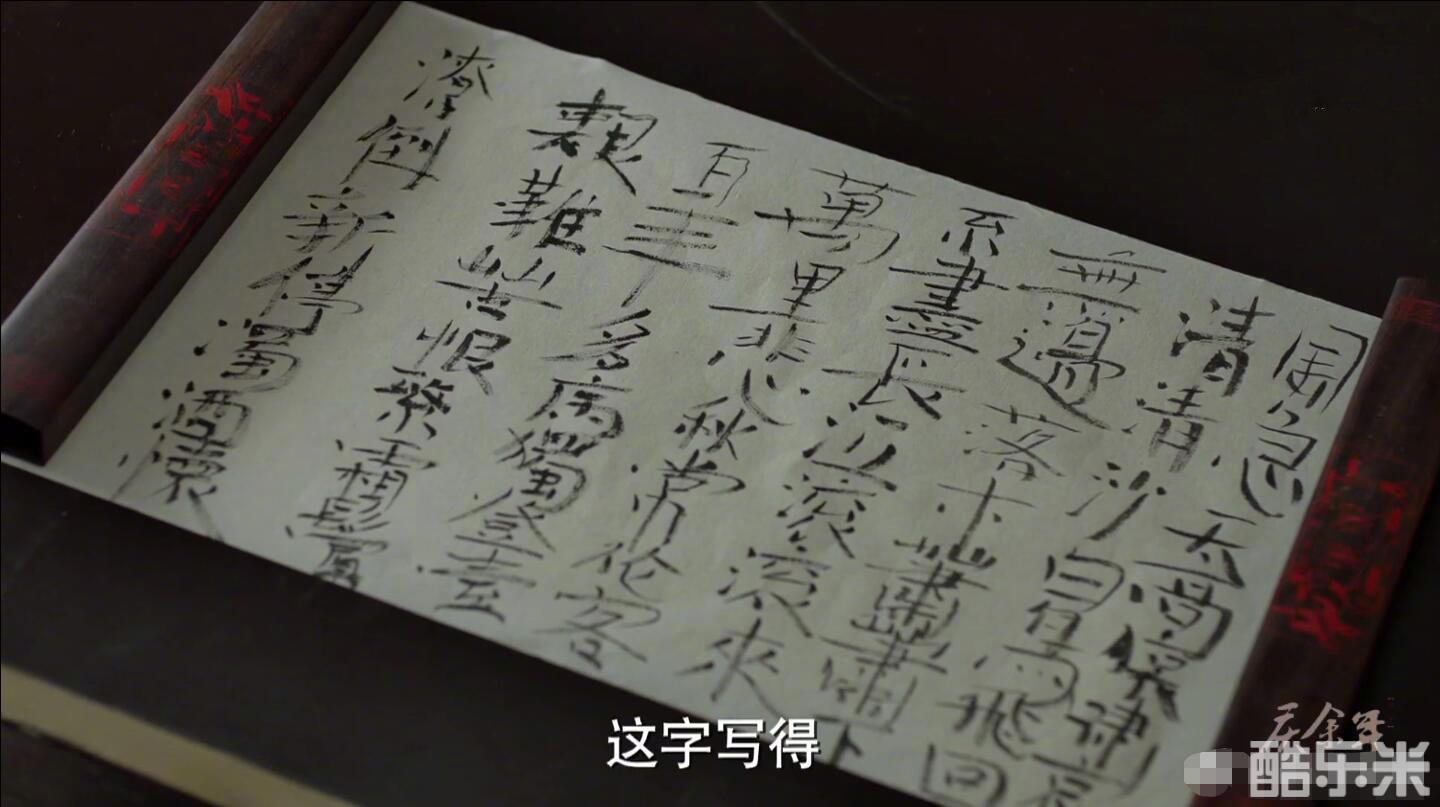 風急天高猿嘯哀
清清沙白鳥飛回
無邊落木蕭蕭下
不盡長江滾滾來
萬里悲秋常作客
百年多病獨登臺
艱難苦恨繁霜鬢
潦倒新停濁酒
这字写得
庆余年
酷乐米